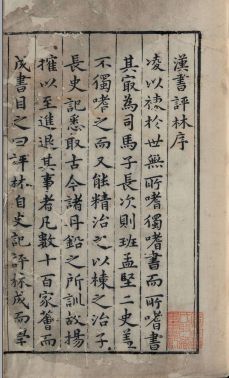 漢書評林序
凌以棟於世無所嗜獨嗜書而所嗜書
其最為司馬子長次則班孟堅二史蓋
不獨嗜之而又能精治之以棟之治子
長史記悉取古今諸丹鉛之所訓故揚
搉以至進退其事者凡數十百家薈而
成書目之曰評林自史記評林成而學